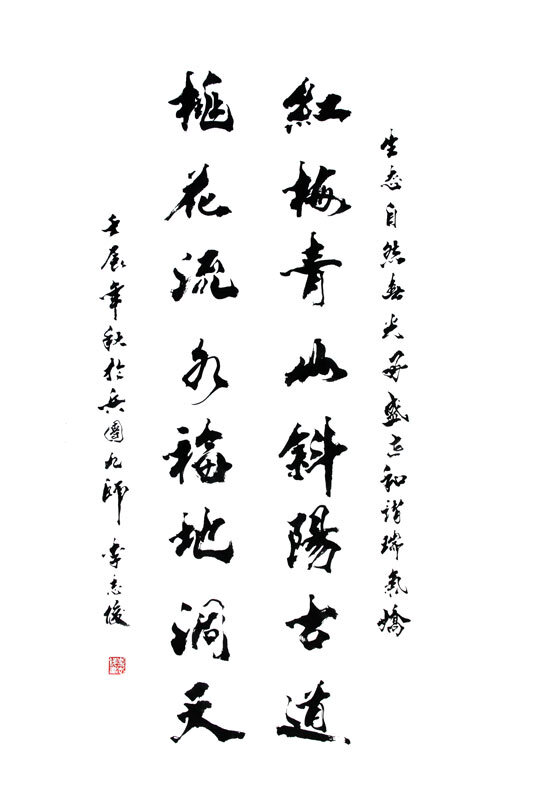 生态自然春光盛世和谐瑞氣嬌
紅梅青山斜陽古道
桃花流水福地洞天
壬辰年秋於兵團九師 李志俊